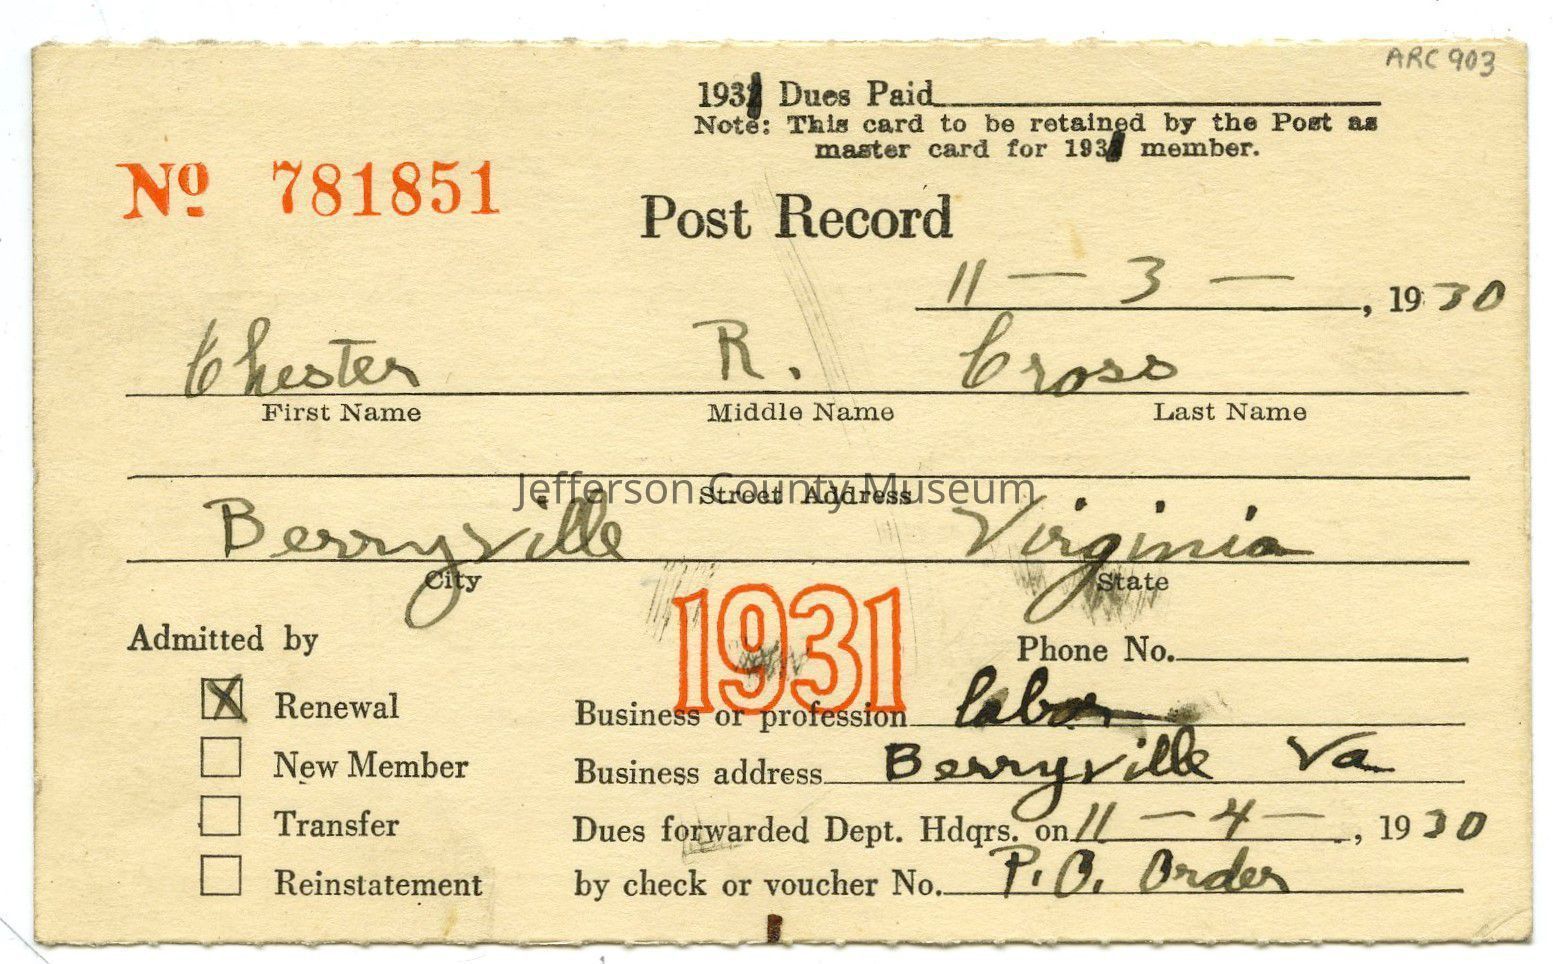 ARC 903
1931 Dues Paid
Note: This card to be retained by the Post as
master card for 1931 member.
No 781851
Post Record
11 — 3 — , 1930
Chester R. Cross
First Name Middle Name Last Name
Jefferson County Museum
Street Address
Berryville Virginia
City State
1931
Admitted by
Phone No.
X Renewal
Business or profession labor
New Member
Business address Berryville Va
Transfer
Dues forwarded Dept. Hdqrs. on 11 — 4 — , 1930
Reinstatement
by check or voucher No. P.O. Order